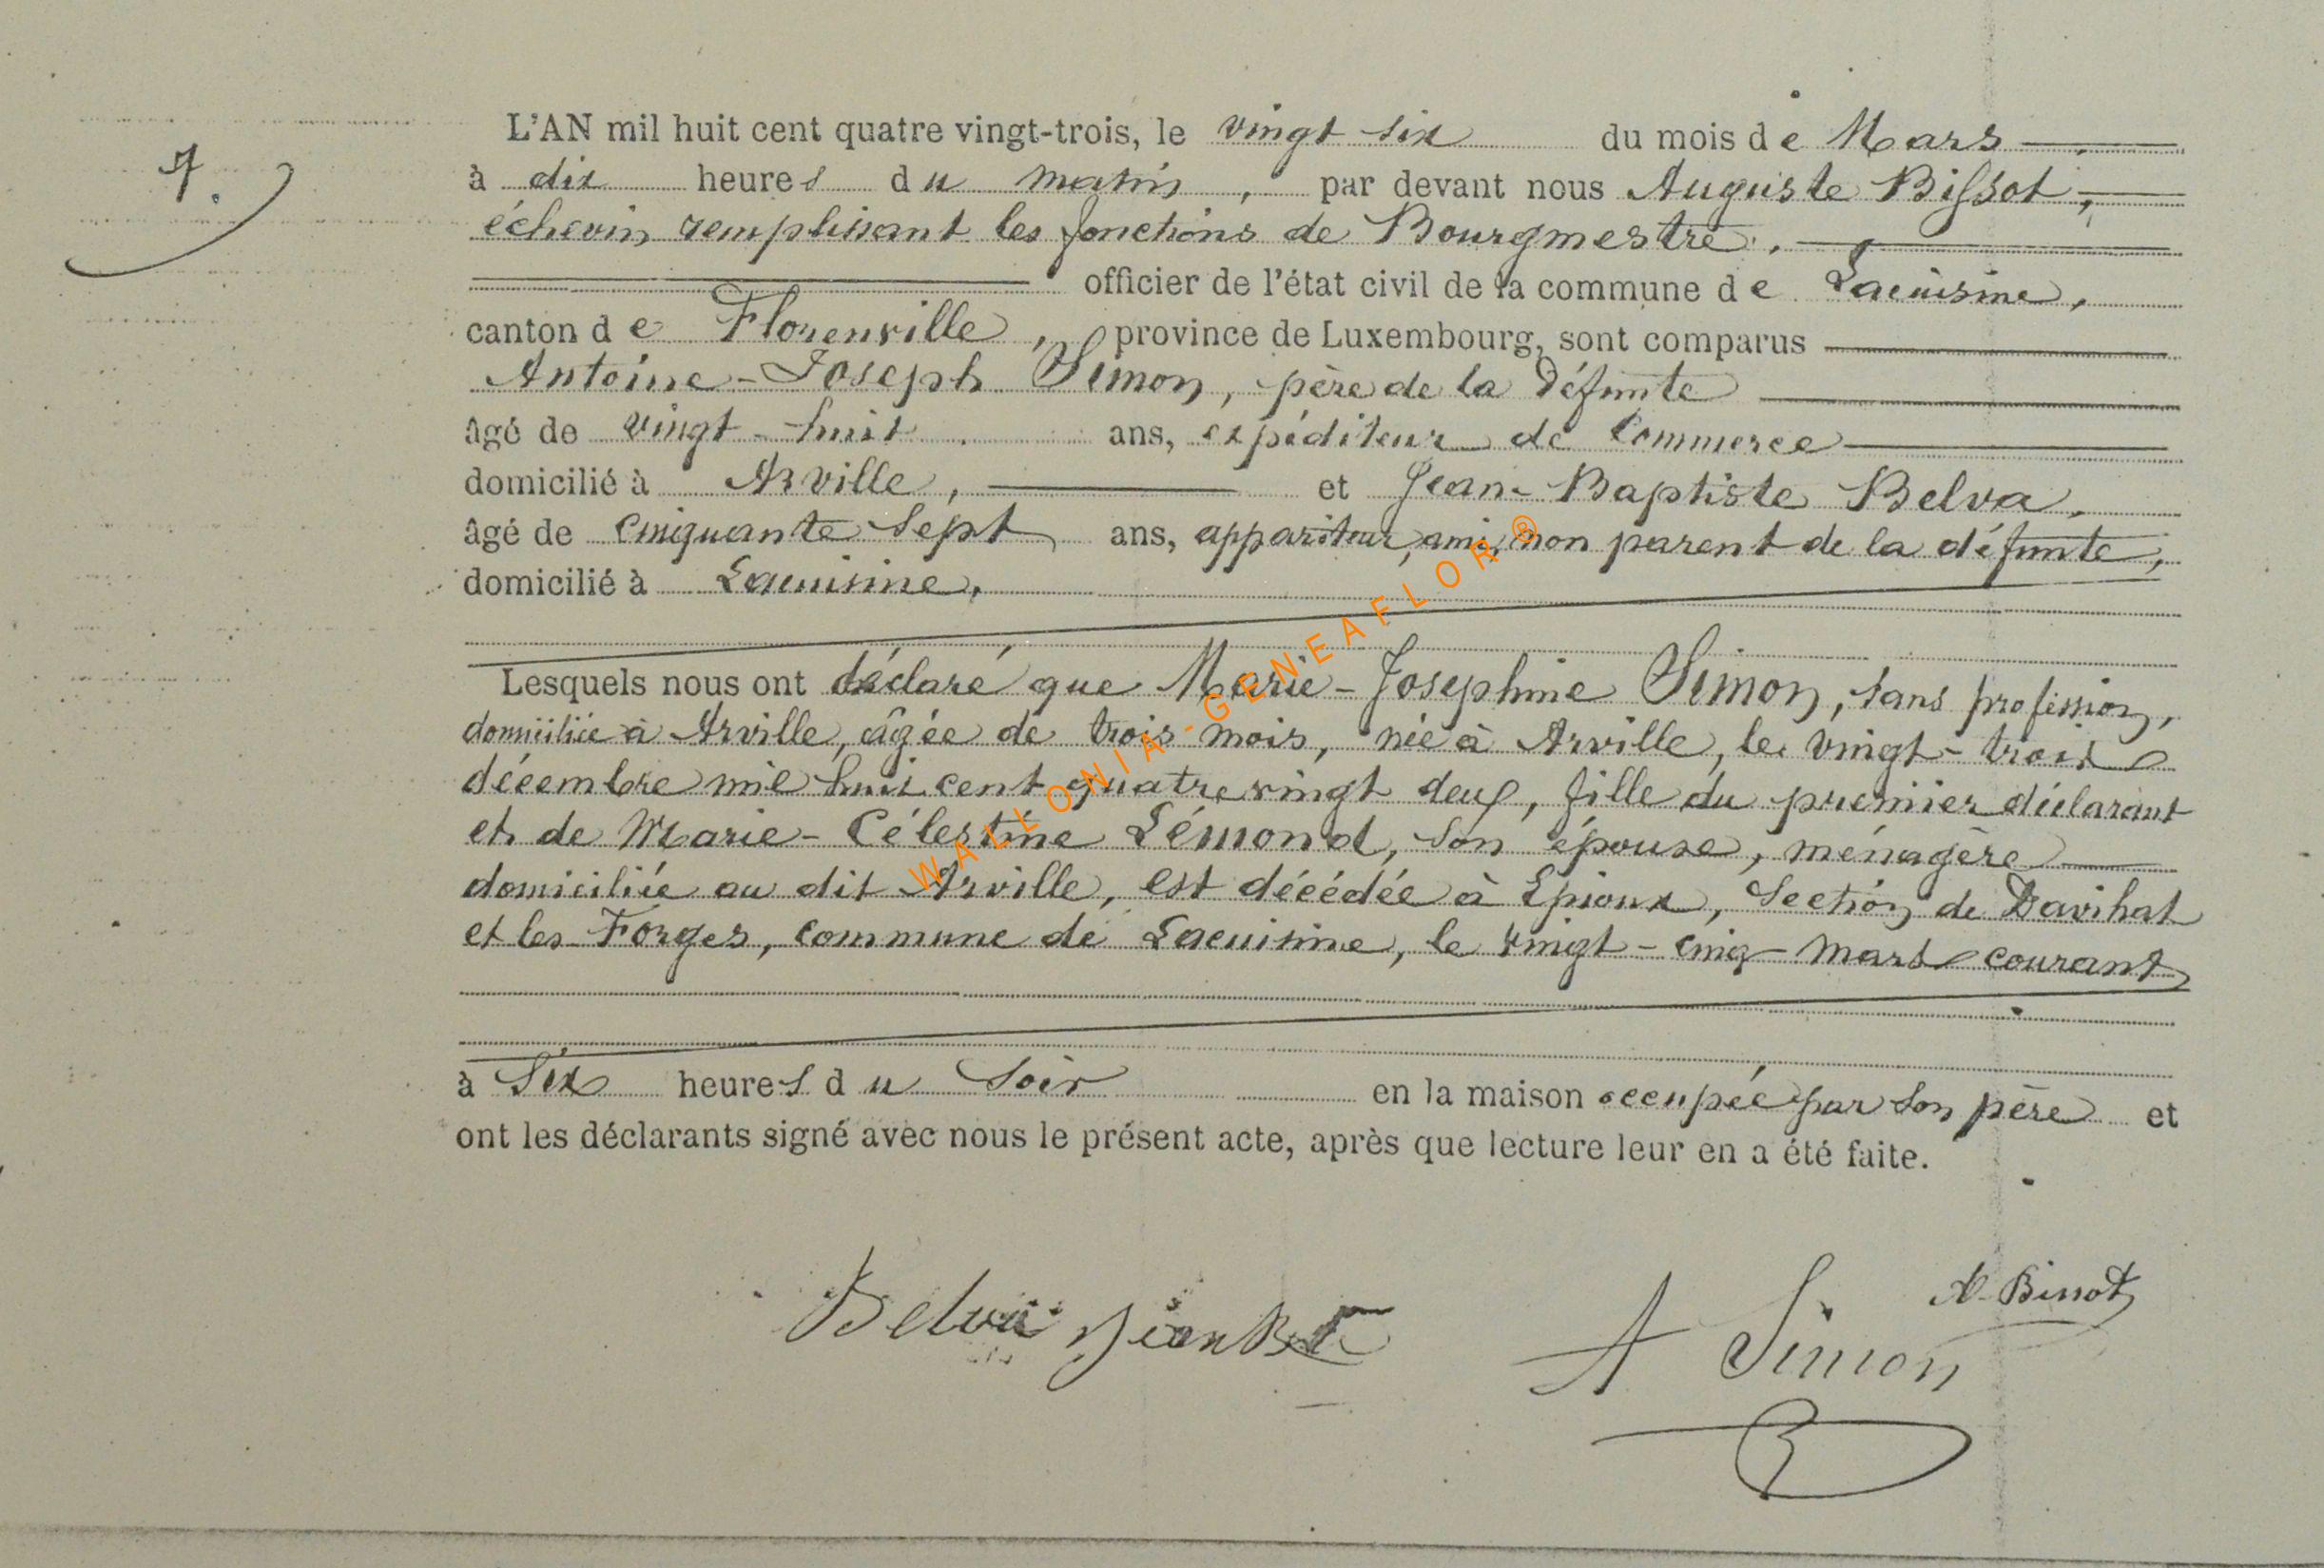 7.
L'AN mil huit cent quatre vingt-trois, le vingt six du mois de Mars
à dix heures du matin, par devant nous Auguste Bissot,
échevin remplissant les fonctions de Bourgmestre,
officier de l'état civil de la commune de Lacuisine,
canton de Florenville, province de Luxembourg, sont comparus
Antoine-Joseph Simon, père de la défunte
âgé de vingt-huit ans, expéditeur de commerce
domicilié à Arville, et Jean-Baptiste Belva,
âgé de cinquante sept ans, appariteur, ami, non parent de la défunte,
domicilié à Lacuisine.
Lesquels nous ont déclaré que Marie-Josephine Simon, sans profession,
domiciliée à Arville, âgée de trois mois, née à Arville, le vingt-trois
décembre mil huit cent quatre vingt deux, fille du premier déclarant
et de Marie-Célestine Lémond, son épouse, ménagère
domiciliée au dit Arville, est décédée à Epioux, Section de
et les Forges, commune de Lacuisine, le vingt-cinq mars courant
à six heures du soir en la maison occupée par son père et
ont les déclarants signé avec nous le présent acte, après que lecture leur en a été faite.
A. Bissot
Belva Jean Bte
A Simon
WALLONIA-GENEAFLOR®